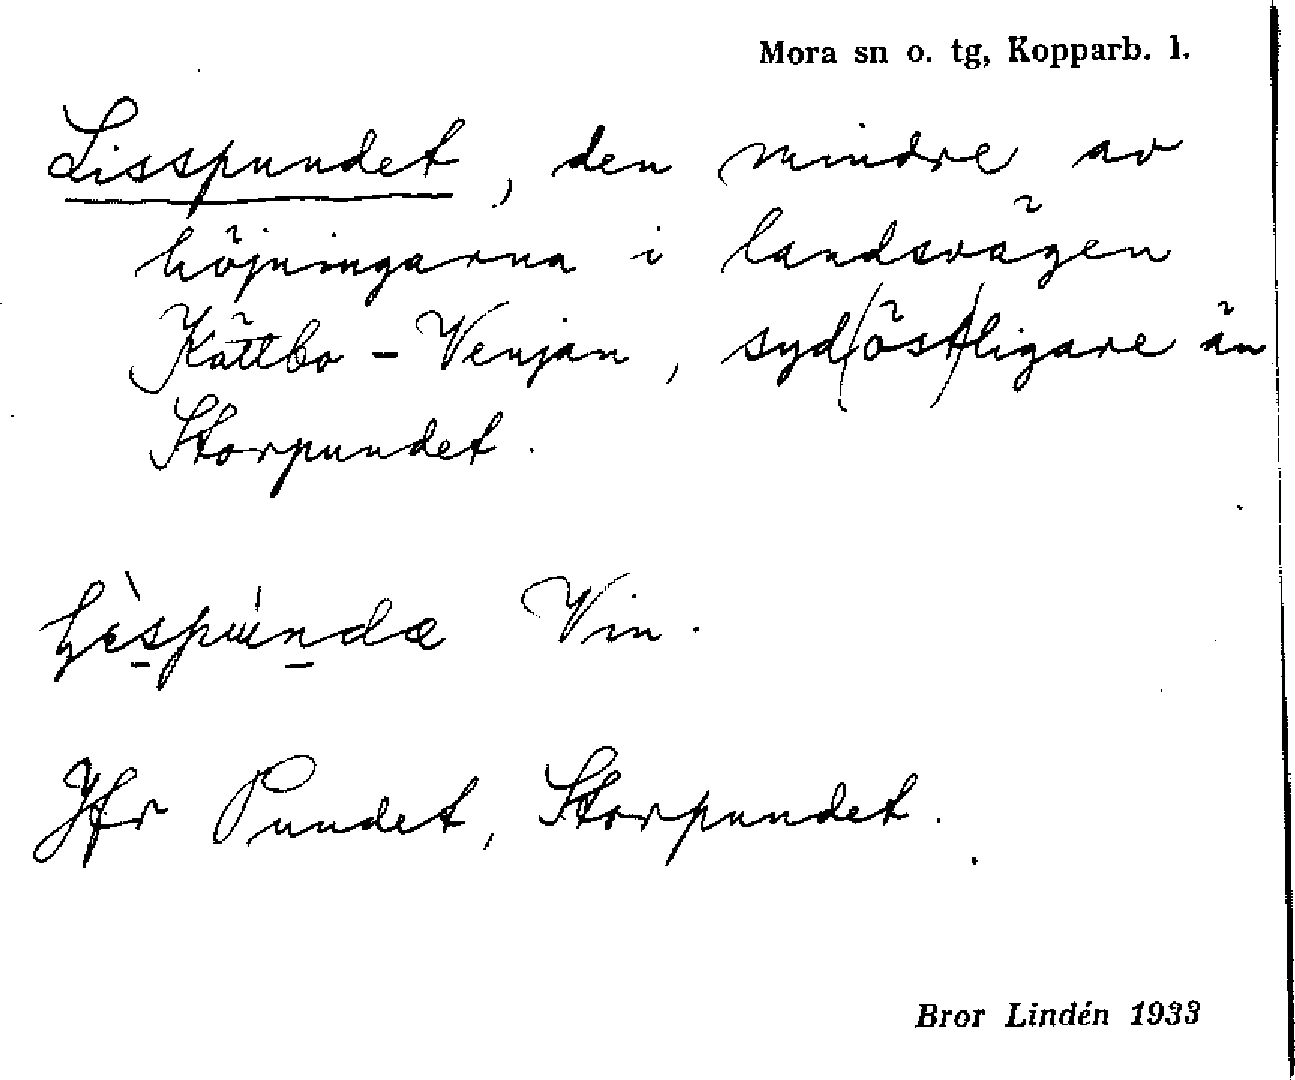 Mora sn o. tg, Kopparb. l.
Lisspundet, den mindre av
höjningarna i landsvägen
Kättbo – Venjan, syd(öst)ligare än
Storpundet.
Vin.
Jfr Pundet, Storpundet.
Bror Lindén 1933